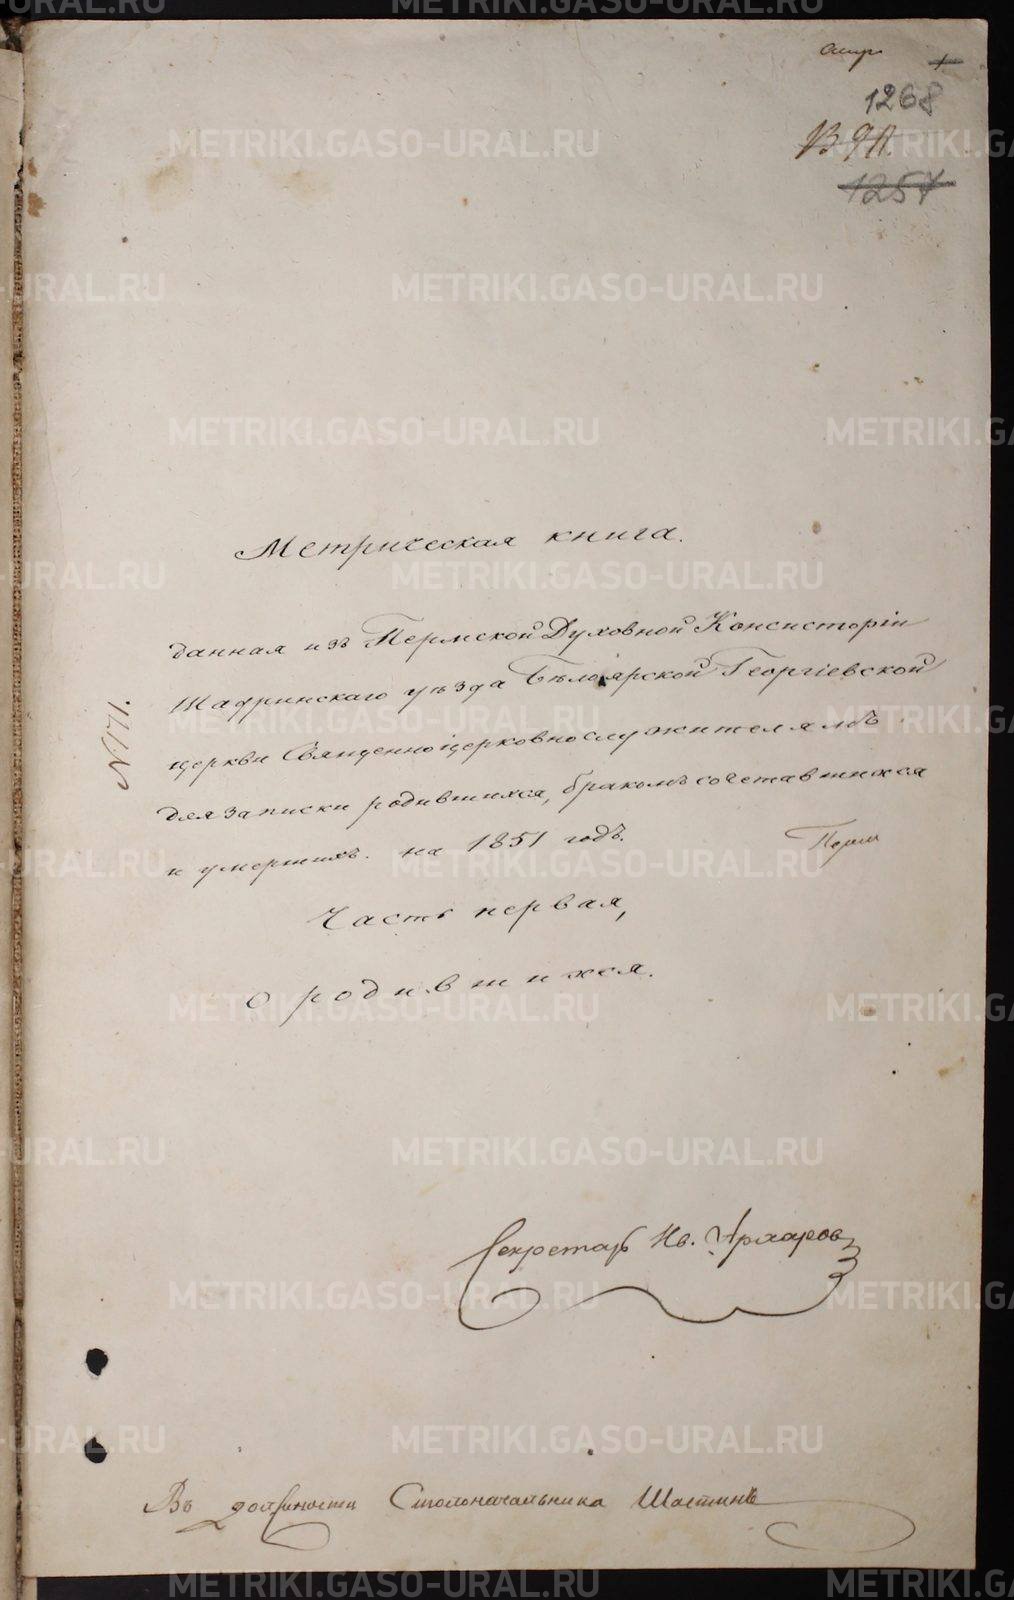 1268
1257
Метрическая книга.
данная изъ Пермской Духовной Консисторіи
Шадринскаго уѣзда Бѣлоярской Георгіевской
церкви Священноцерковнослужителямъ
для записки родившихся, бракомъ сочетавшихся
и умершихъ. на 1851 годъ.
№ 171.
Часть первая,
о родившихся.
Секретарь Ив.
Въ должности Столоначальника Шастинъ
METRIKI.GASO-URAL.RU